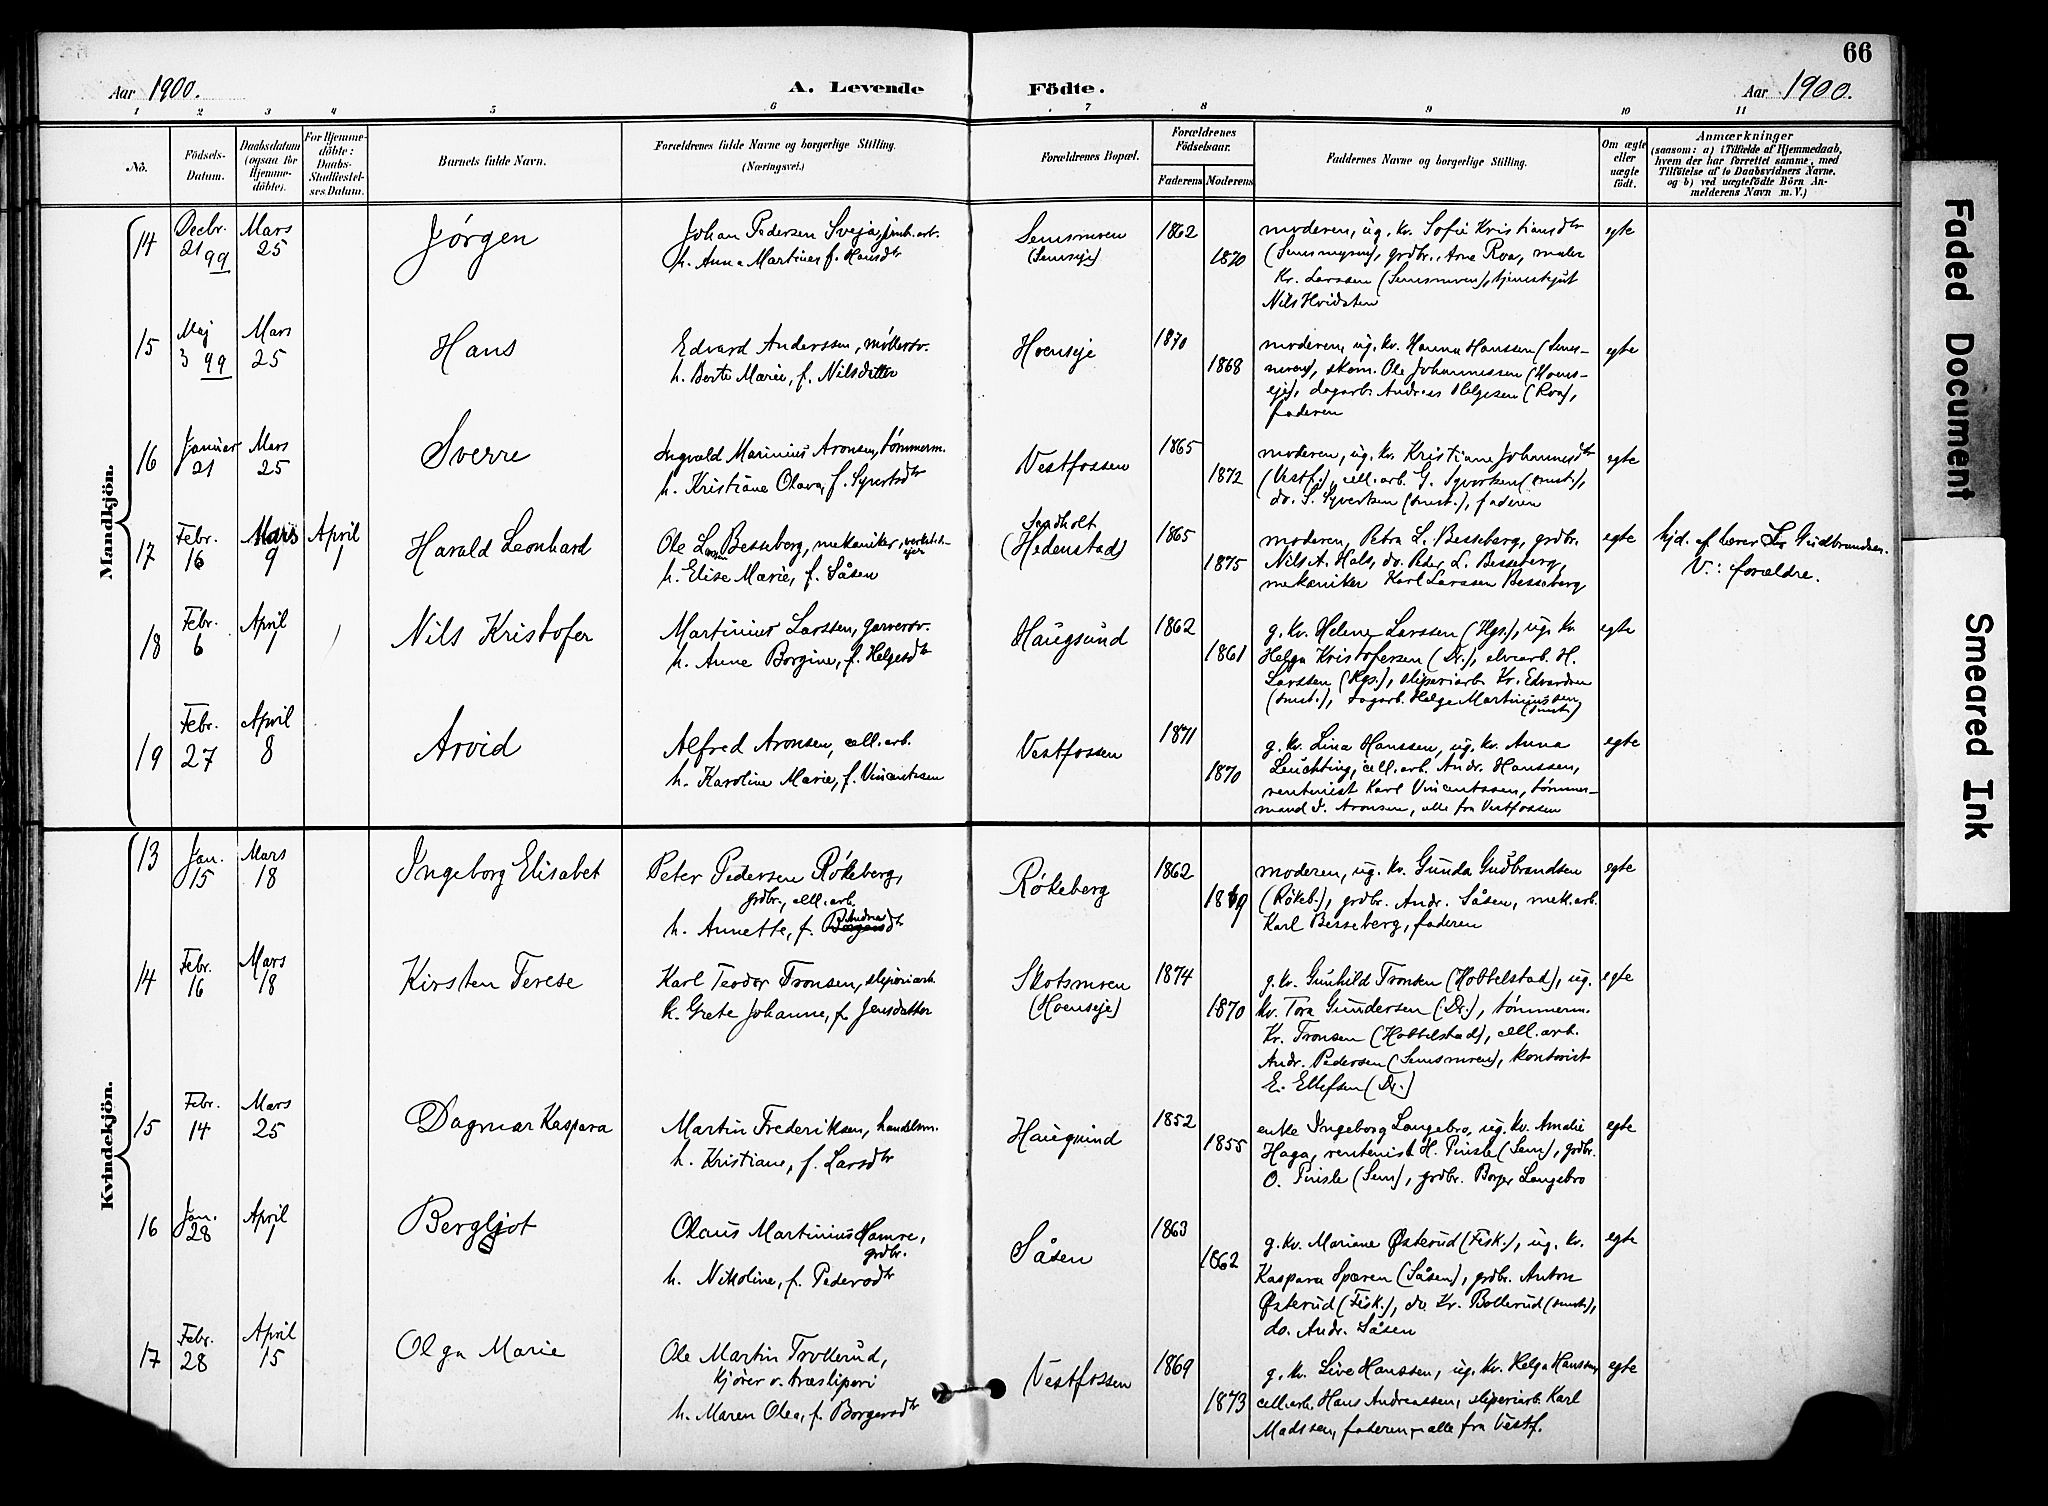 66
Aar 1900.
A. Levende Födte.
Aar 1900.
1 2 3 4 5 6 7 8 9 10 11
No.
Födsels-
Datum.
Daabsdatum
(ogsaa for
Hjemme-
döbte).
For Hjemme-
döbte:
Daabs-
Stadfæstel-
ses Datum.
Barnets fulde Navn.
Forældrenes fulde Navne og borgerlige Stilling.
(Næringsvei.)
Forældrenes Bopæl.
Forældrenes
Födselsaar.
Faderens
Moderens
Faddernes Navne og borgerlige Stilling.
Om ægte
eller
uægte
födt.
Anmærkninger
(saasom: a) i Tilfælde af Hjemmedaab,
hvem der har forrettet samme, med
Tilföielse af to Daabsvidners Navne,
og b) ved uægtefödte Börn An-
melderens Navn m. V.)
Mandkjön.
14
Decbr.
21 99
Mars
25
Jørgen
Johan Pedersen Sveja,
h. Anna Martines f. Hansdtr
Semsmoen
(Semseje)
1862
1870
moderen, ug. kv. Sofie Kristiansdtr
(Semsmoen), grdbr. Arne Roa, maler
Kr. Larssen (Semsmoen), tjenestegut
Nils Hvidsten
egte
15
Maj
3 99
Mars
25
Hans
Edvard Anderssen, møllersv.
h. Berte Marie, f. Nilsdatter
Hoenseje
1870
1868
moderen, ug. kv. Hanna Hanssen (Sems-
moen), skom. Ole Johannessen (Hoens-
eje), dagarb. Andreas Helgesen (Roa),
faderen
egte
16
Januar
21
Mars
25
Sverre
Ingvald Marinius Aronsen, tømmerm.
h. Kristiane Olava, f. Syvertsdtr
Vestfossen
1865
1872
moderen, ug. kv. Kristiane Johannesdtr
(Vestf.), cell. arb. G. Syvertsen (smst.),
do. S. Syvertsen (smst.), faderen
egte
17
Febr.
16
Mars
9
April
1
Harald Leonhard
Ole Larssen Besseberg, mekaniker, verksteds-
ejer
h. Elise Marie, f. Såsen
Sandholt
(Hedenstad)
1865
1875
moderen, Petra L. Besseberg, grdbr.
Nils A. Hals, do. Peder L. Besseberg,
mekaniker Karl Larssen Besseberg
egte
hjd. af lærer Gudbrandsen.
V.: forældre.
18
Febr.
6
April
1
Nils Kristofer
Martinius Larssen, garversv.
h. Anne Borgine, f. Helgesdtr
Haugsund
1862
1861
g. kv. Helene Larssen (Hgs.), ug. kv.
Helga Kristofersen (Dr.), elvearb. H.
Larssen (Hgs.), sliperiarb. Kr. Edvardsen
(smst.), dagarb. Helge Martiniussen
(smst.)
egte
19
Febr.
27
April
8
Arvid
Alfred Aronsen, cell. arb.
h. Karoline Marie, f. Vincentssen
Vestfossen
1871
1870
g. kv. Lina Hanssen, ug. kv. Anna
Leuchting, cell. arb. Andr. Hanssen,
rentenist Karl Vincentssen, tømmer-
mand I. Aronsen, alle fra Vestfossen
egte
Kvindekjön.
13
Jan.
15
Mars
18
Ingeborg Elisabet
Peter Pedersen Røkeberg,
grdbr., cell. arb.
h. Annette, f. Andreasdtr
Røkeberg
1862
1869
moderen, ug. kv. Gunda Gudbrandsen
(Røkeb.), grdbr. Andr. Såsen, mek. arb.
Karl Besseberg, faderen
egte
14
Febr.
16
Mars
18
Kirsten Terese
Karl Teodor Tronsen, sliperiarb.
h. Grete Johanne, f. Jensdatter
Skotsmoen
(Hoenseje)
1874
1870
g. kv. Gunhild Tronsen (Hobbelstad), ug.
kv. Tora Gundersen (Dr.), tømmerm.
Kr. Tronsen (Hobbelstad), cell. arb.
Andr. Pedersen (Semsmoen), kontorist
E. Ellefsen (Dr.)
egte
15
Febr.
14
Mars
25
Dagmar Kaspara
Martin Frederiksen, handelsm.
h. Kristiane, f. Larsdtr
Haugsund
1852
1855
enke Ingeborg Langebro, ug. kv. Amalie
Haga, rentenist H. Tvisle (Sem), grdbr.
O. Tvisle (Sem), grdbr. Borger Langebro
egte
16
Jan.
28
April
1
Bergljot
Olaus Martinius Hamre,
grdbr.
h. Nikoline, f. Pedersdtr
Såsen
1863
1862
g. kv. Mariane Østerud (Fisk.), ug. kv.
Kaspara Sparen (Såsen), grdbr. Anton
Østerud (Fisk.), do. Kr. Bollerud (smst.),
do. Andr. Såsen
egte
17
Febr.
28
April
15
Olga Marie
Ole Martin Trollerud,
kjører v. træsliperi
h. Maren Olea, f. Borgersdtr
Vestfossen
1869
1873
g. kv. Live Hanssen, ug. kv. Helga Hanssen,
cell. arb. Hans Andreassen, sliperiarb. Karl
Madssen, faderen, alle fra Vestf.
egte
Faded Document
Smeared Ink